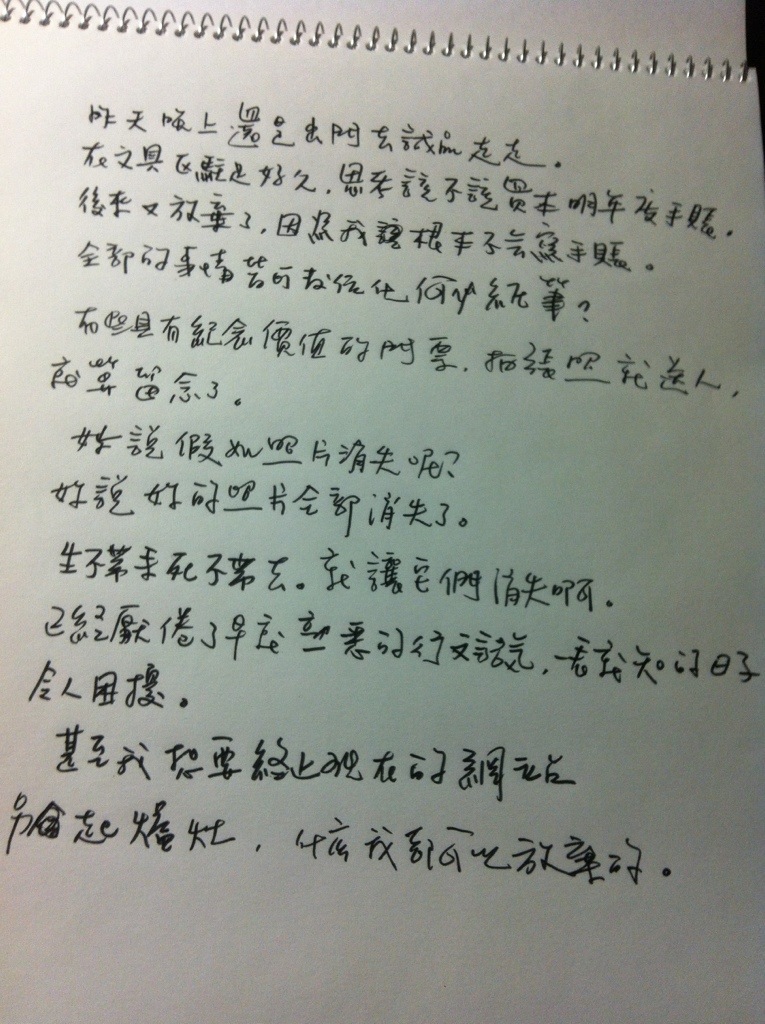 昨天晚上還是出門去誠品走走。
在文具區駐足好久，思考該不該買本明年度手賬。
後來又放棄了，因為我讓根本不會寫手賬。
全部的事情皆可數位化何必紙筆？
有些具有紀念價值的門票，拍張照就送人，
就算留念了。
妳說假如照片消失呢？
妳說妳的照片全部消失了。
生不帶來死不帶去。就讓它們消失啊。
已經厭倦了早就熟悉的行文語氣，一看就知的日子
令人困擾。
甚至我想要終止現在的網站
另起爐灶，什麼我都可以放棄的。